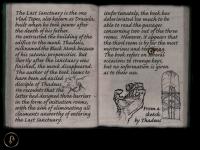 The Last Sanctuary is the one
Vlad Tepes, also known as Dracula,
built when he took power after
the death of his father.
He entrusted the building of the
edifice to the monk, Thadeus,
nicknamed the Black Monk because
of his satanic practices. But
shortly after the sanctuary was
finished, the monk disappeared.
The author of the book seems to
have been an exiled
disciple of Thadeus;
he recounts that the
latter had designed three barriers
in the form of initiation rooms,
with the aim of eliminating all
claimants unworthy of entering
the Last Sanctuary.
Unfortunately, the book has
deteriorated too much to be
able to read the passages
concerning two out of the three
rooms. However, it appears that
the third room is by far the most
The book refers on several
occasions to strange keys,
but no information is given
as to their use.
From a
sketch
by
Thadeus